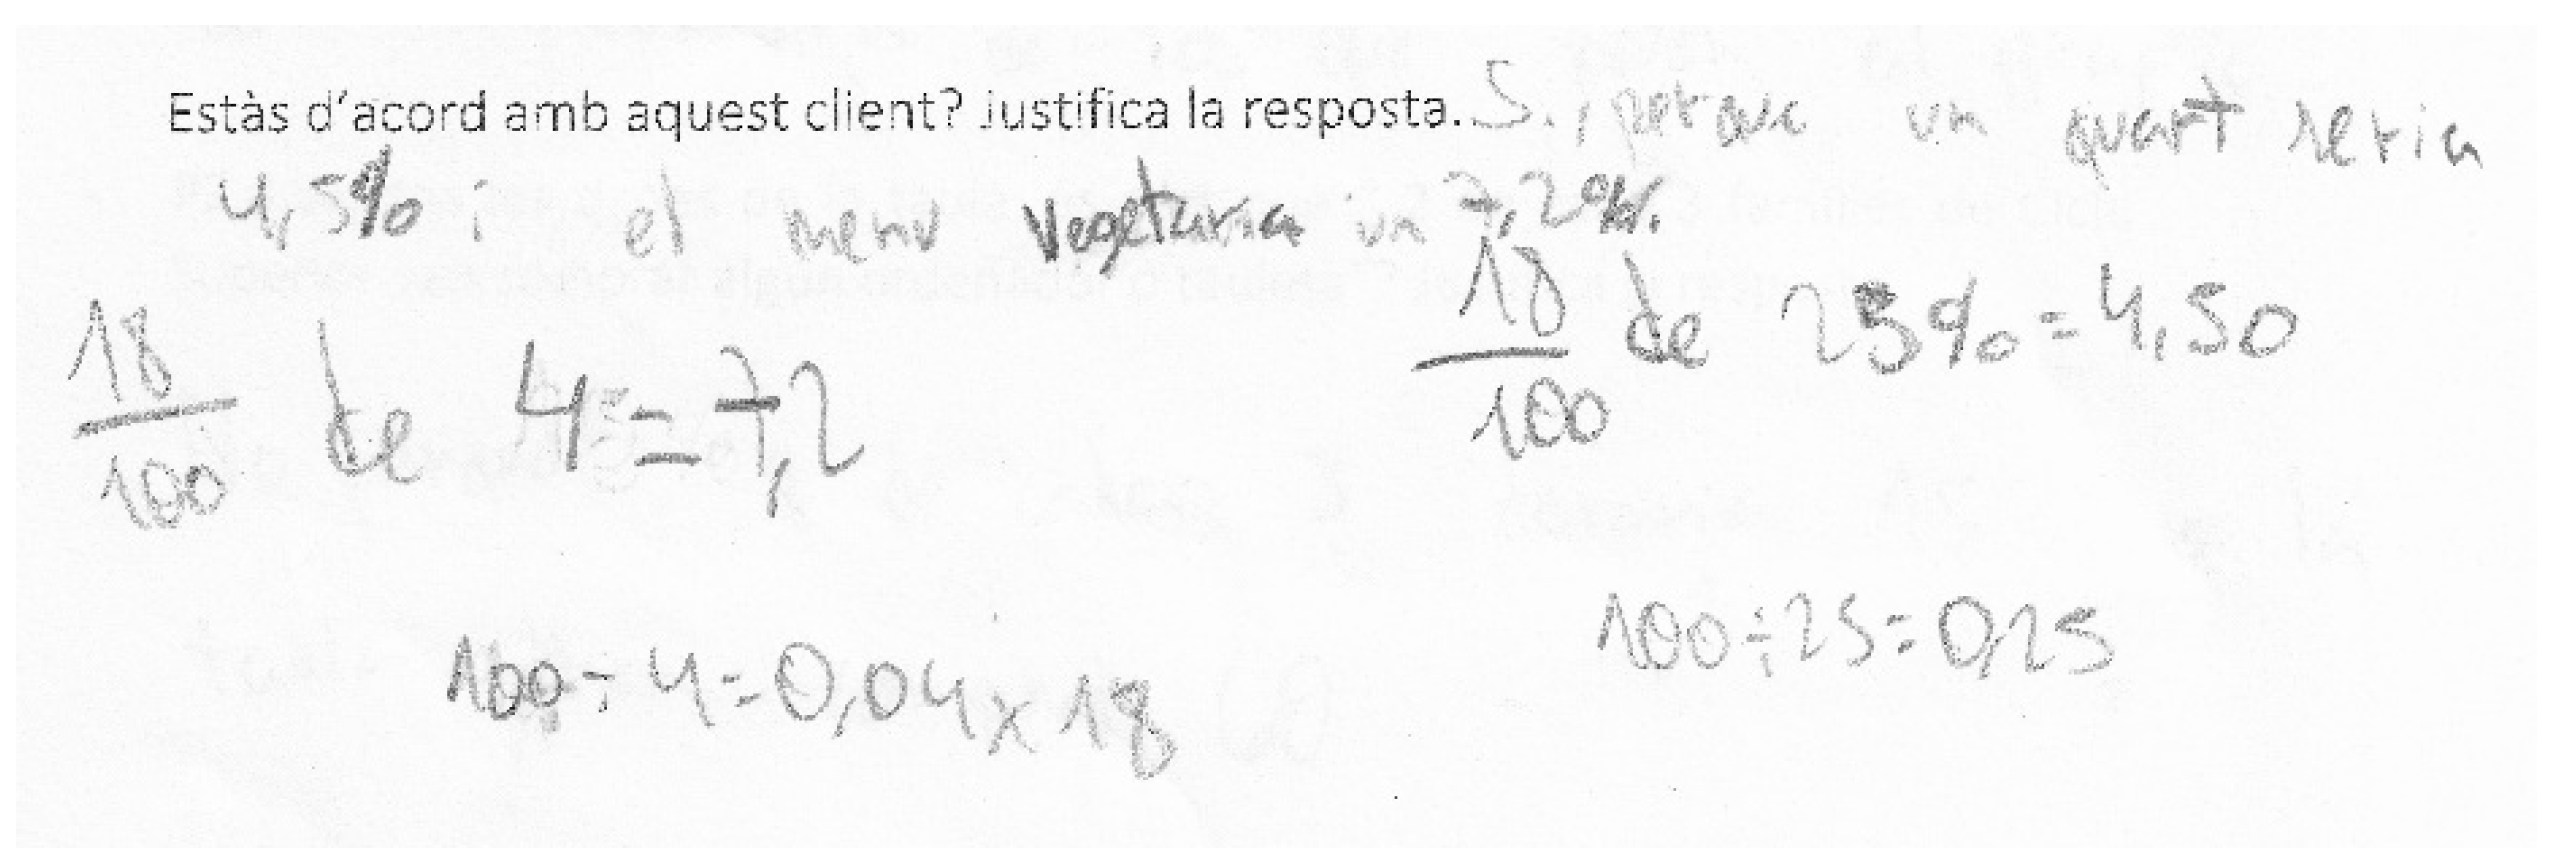 Estàs d'acord amb aquest client? Justifica la resposta. Si, perque un quart seria
4,5% i el menu vegetaria un 7,2%.
18/100 de 4 = 7,2
18/100 de 25% = 4,50
100 ÷ 25 = 0,25
100 ÷ 4 = 0,04 x 18